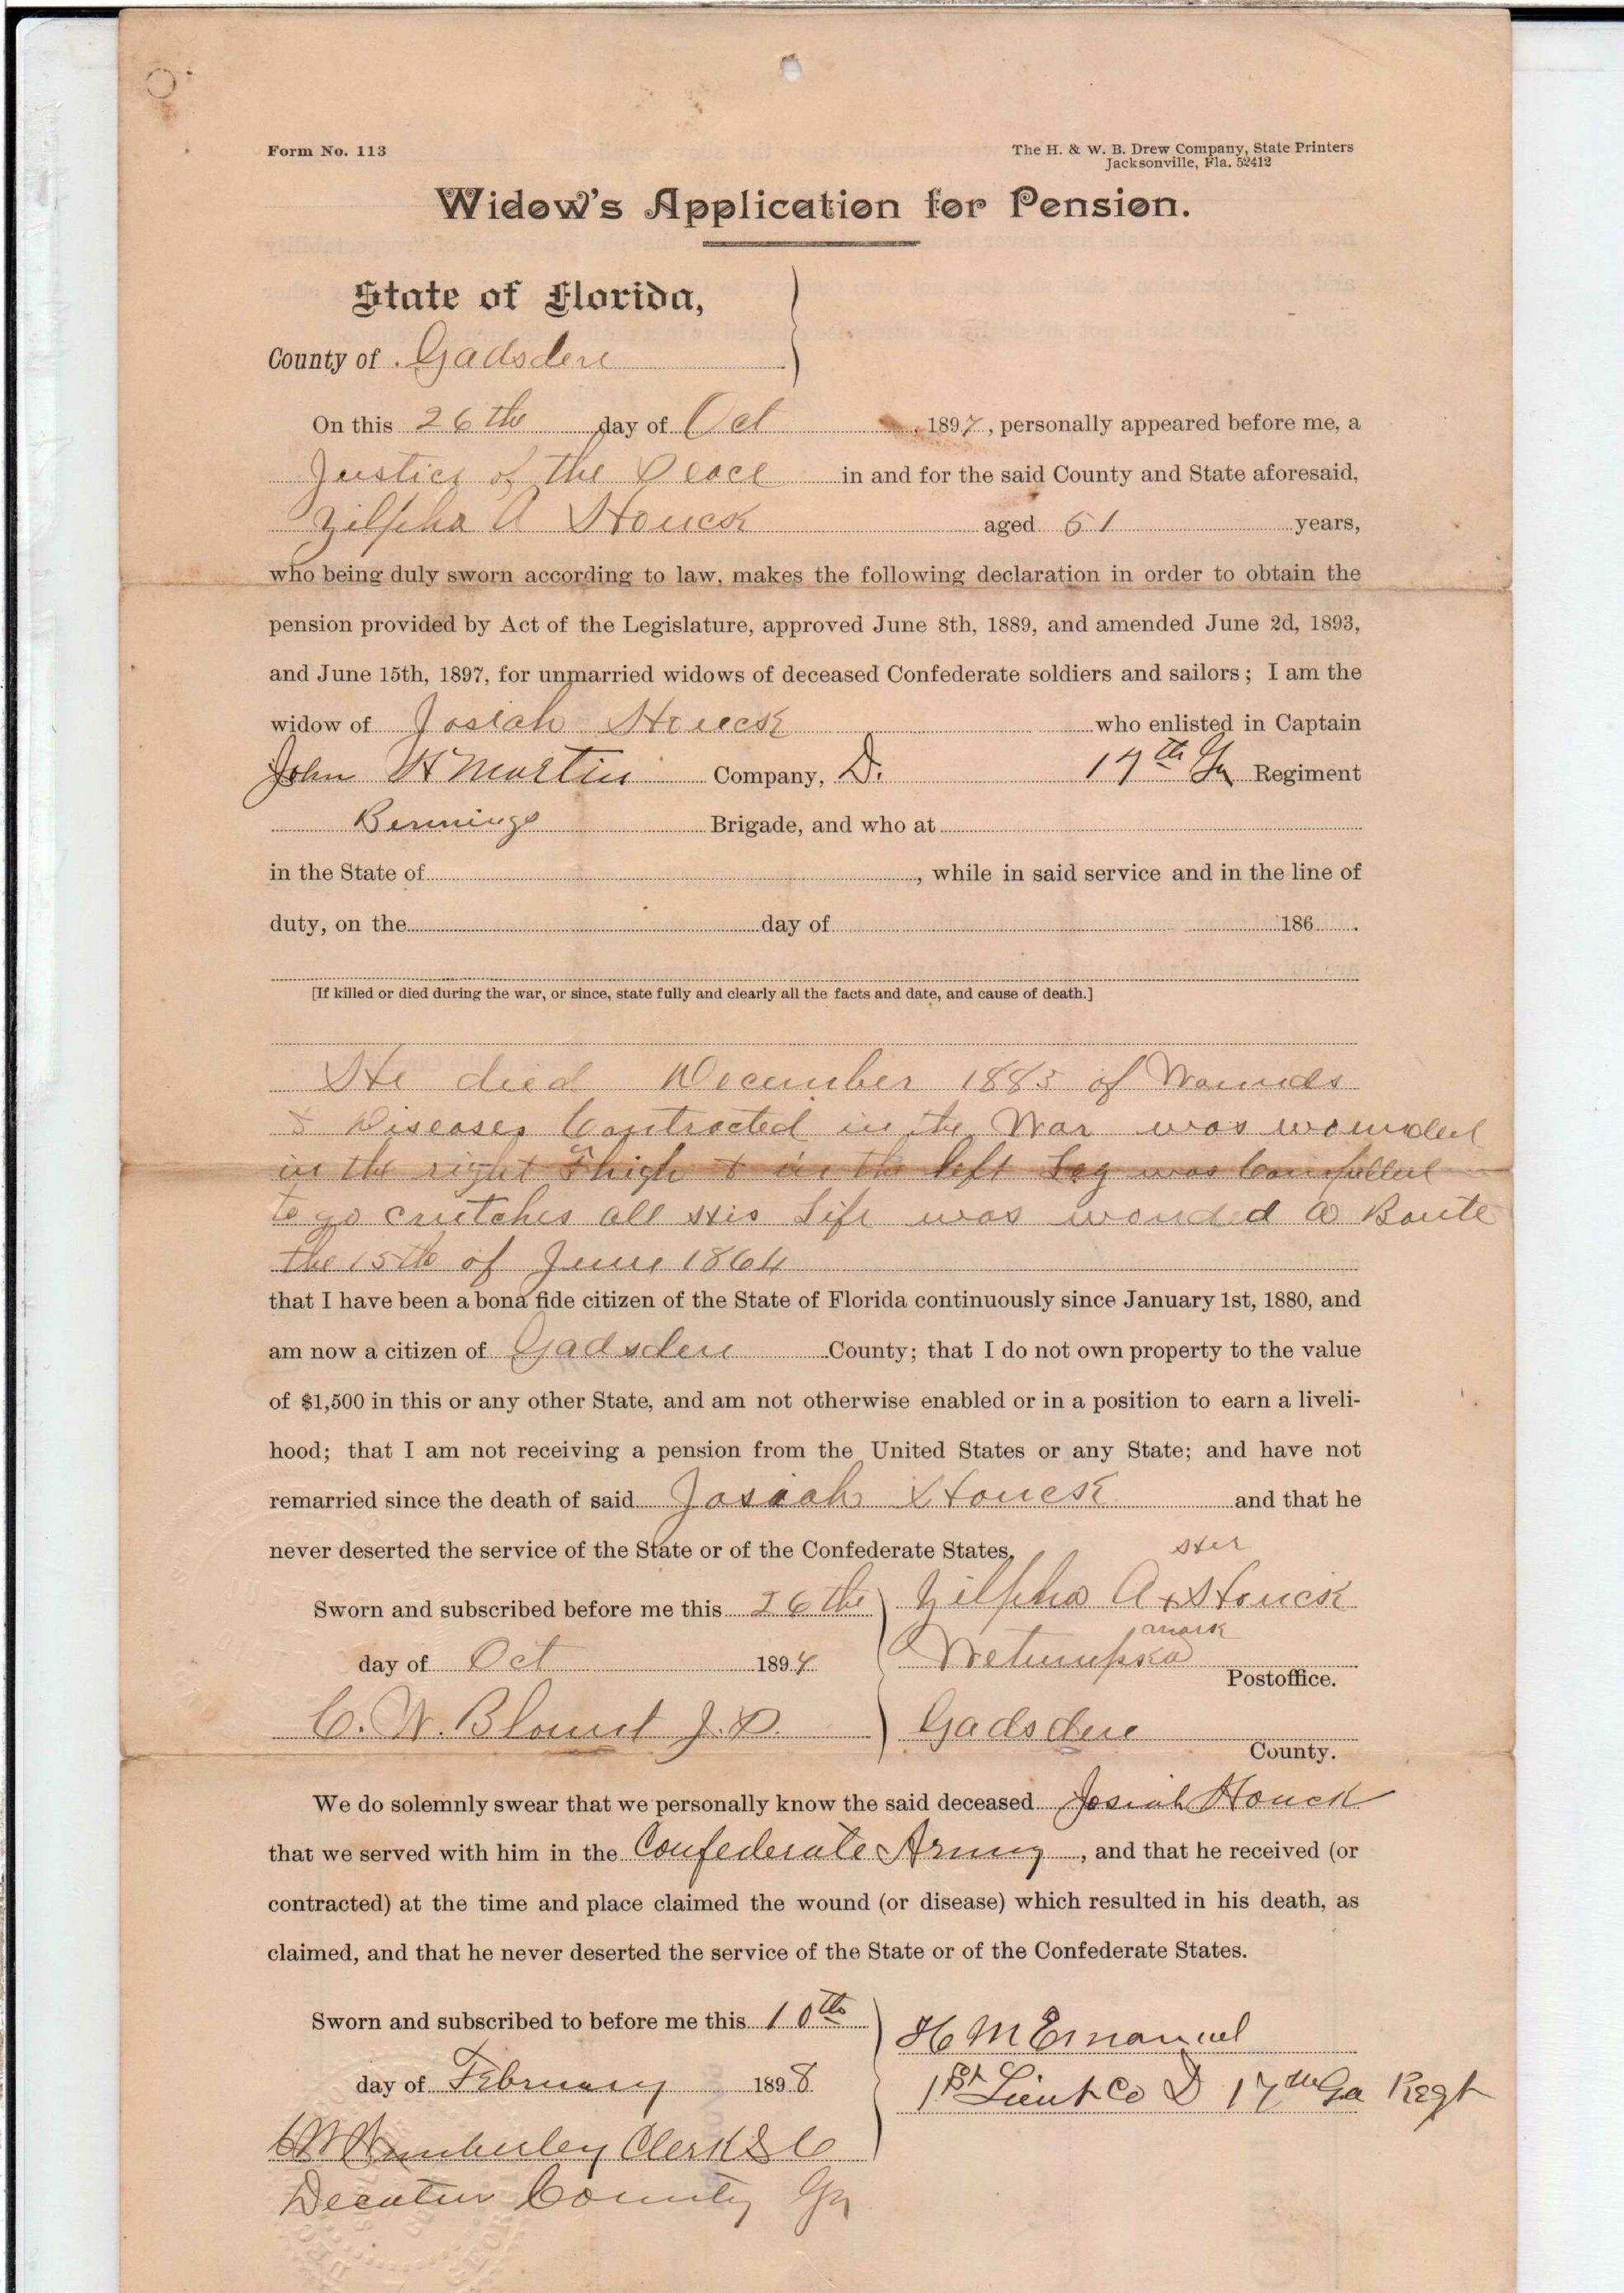 Form No. 113
The H. & W. B. Drew Company, State Printers
Jacksonville, Fla. 52412
Widow's Application for Pension.
State of Florida,
County of Gadsden
On this 26th day of Oct, 1897, personally appeared before me, a
Justice of the Peace in and for the said County and State aforesaid,
Zilpha A Houck aged 51 years,
who being duly sworn according to law, makes the following declaration in order to obtain the
pension provided by Act of the Legislature, approved June 8th, 1889, and amended June 2d, 1893,
and June 15th, 1897, for unmarried widows of deceased Confederate soldiers and sailors; I am the
widow of Josiah Houck who enlisted in Captain
John H Martin Company, D. 17th Ga Regiment
Bennings Brigade, and who at
in the State of , while in said service and in the line of
duty, on the day of 186 .
[If killed or died during the war, or since, state fully and clearly all the facts and date, and cause of death.]
He died December 1885 of Wounds
& Diseases Contracted in the War was wounded
in the right Thigh & in the left Leg was Compelled
to go crutches all His Life was wonded a Boute
the 15th of June 1864
that I have been a bona fide citizen of the State of Florida continuously since January 1st, 1880, and
am now a citizen of Gadsden County; that I do not own property to the value
of $1,500 in this or any other State, and am not otherwise enabled or in a position to earn a liveli-
hood; that I am not receiving a pension from the United States or any State; and have not
remarried since the death of said Josiah Houck and that he
never deserted the service of the State or of the Confederate States.
Her
Sworn and subscribed before me this 26th Zilpha A x Houck
mark
day of Oct 1897 Wetumpka
Postoffice.
C. W. Blount J. P. Gadsden
County.
We do solemnly swear that we personally know the said deceased Josiah Houck
that we served with him in the Confederate Army, and that he received (or
contracted) at the time and place claimed the wound (or disease) which resulted in his death, as
claimed, and that he never deserted the service of the State or of the Confederate States.
Sworn and subscribed to before me this 10th H M Emanuel
day of February 1898 1st Lieut Co D 17th Ga Regt
Wimberley Clerk S C
Decatur County Ga